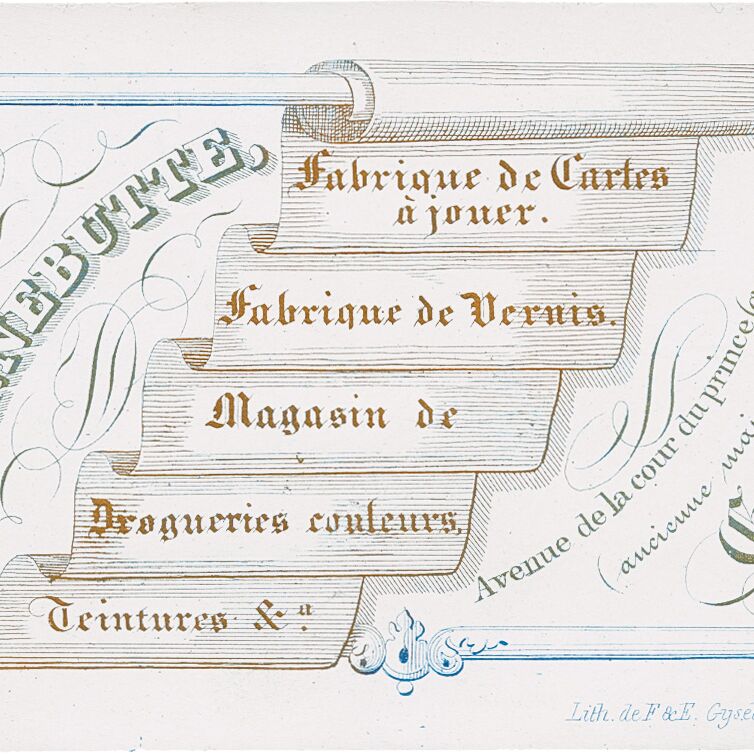 NEBUTTE,
Fabrique de Cartes
à jouer.
Fabrique de Vernis.
Magasin de
Drogueries couleurs,
Teintures & a.
Avenue de la cour du prince
(ancienne mai
Lith. de F & E. Gysel